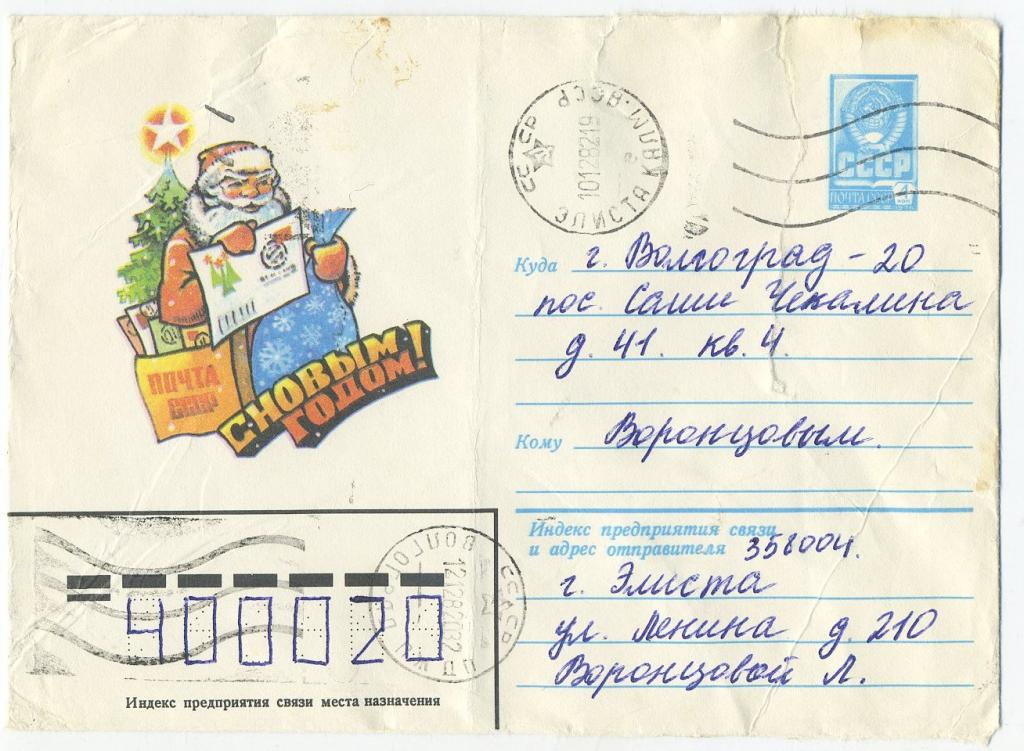 ПОЧТА
СССР
С НОВЫМ
ГОДОМ!
СССР
ЭЛИСТА
СССР
ПОЧТА СССР
Куда г. Волгоград - 20
пос. Саши Чекалина
д. 41. кв. 4.
Кому Воронцовым.
Индекс предприятия связи
и адрес отправителя 358004.
г. Элиста
ул. Ленина д. 210
Воронцовой Л.
400020
Индекс предприятия связи места назначения